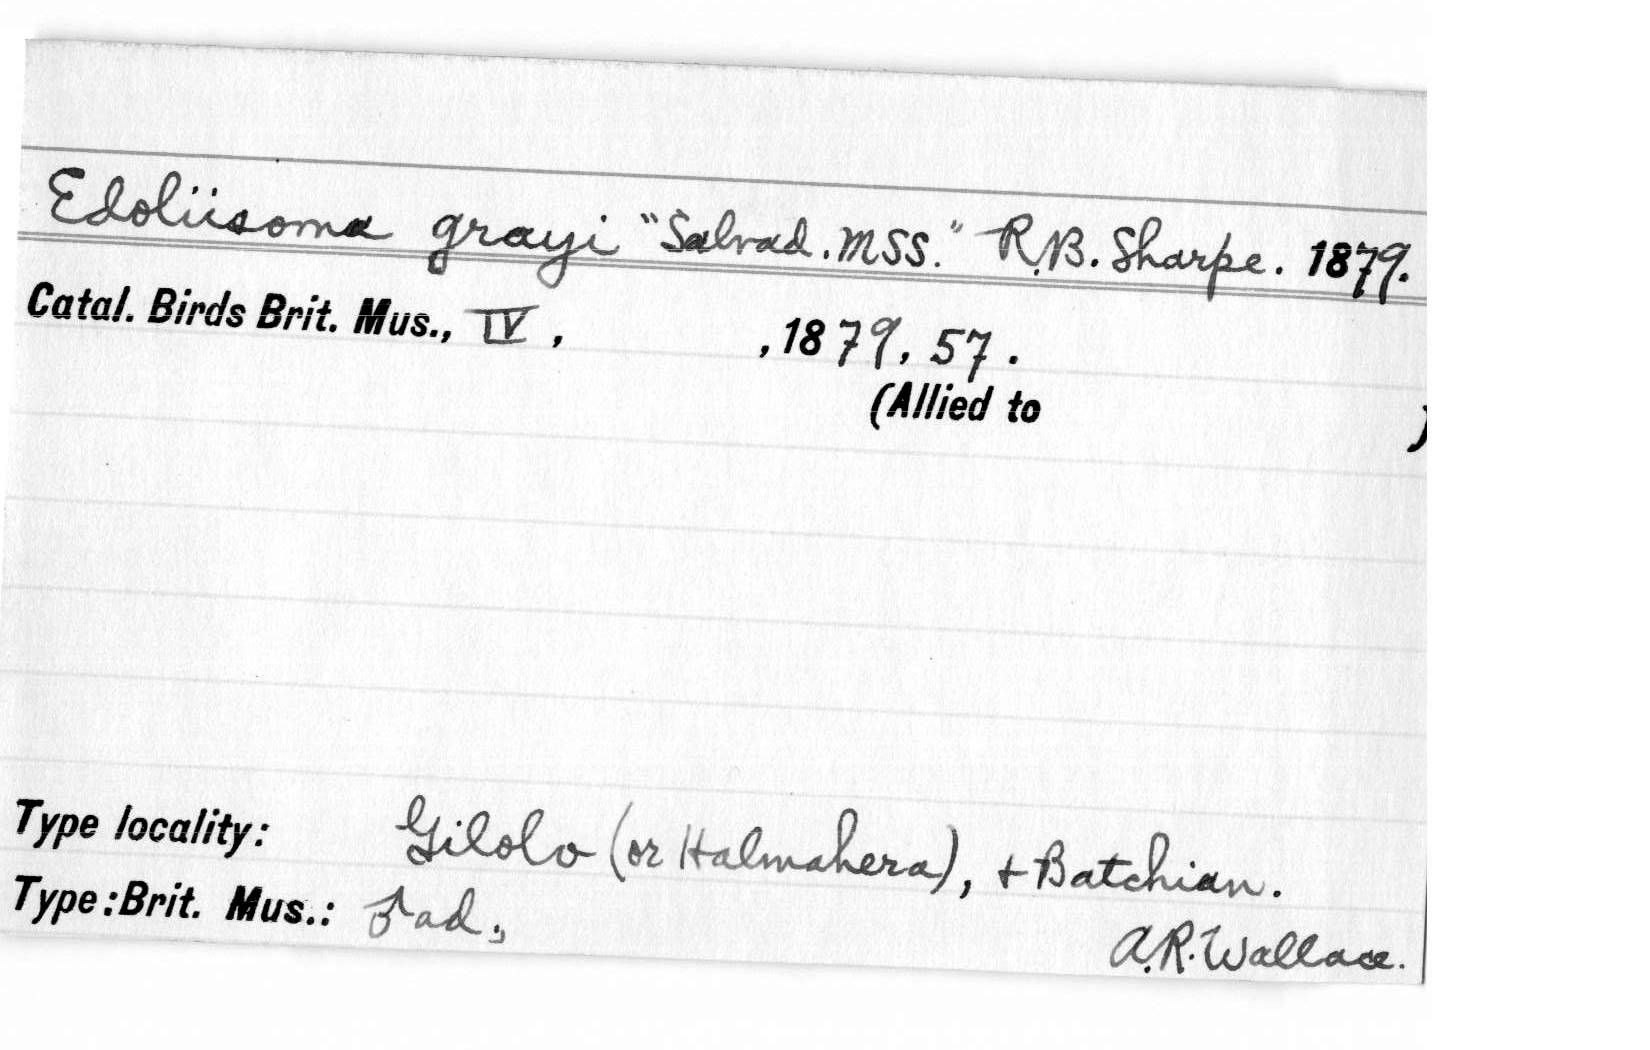 Edoliisoma grayi "Salvad. MSS." R.B. Sharpe. 1879.
Catal. Birds Brit. Mus., IV, , 1879, 57.
(Allied to )
Type locality: Gilolo (or Halmahera), + Batchian.
Type: Brit. Mus.: ♂ ad.,
A.R. Wallace.